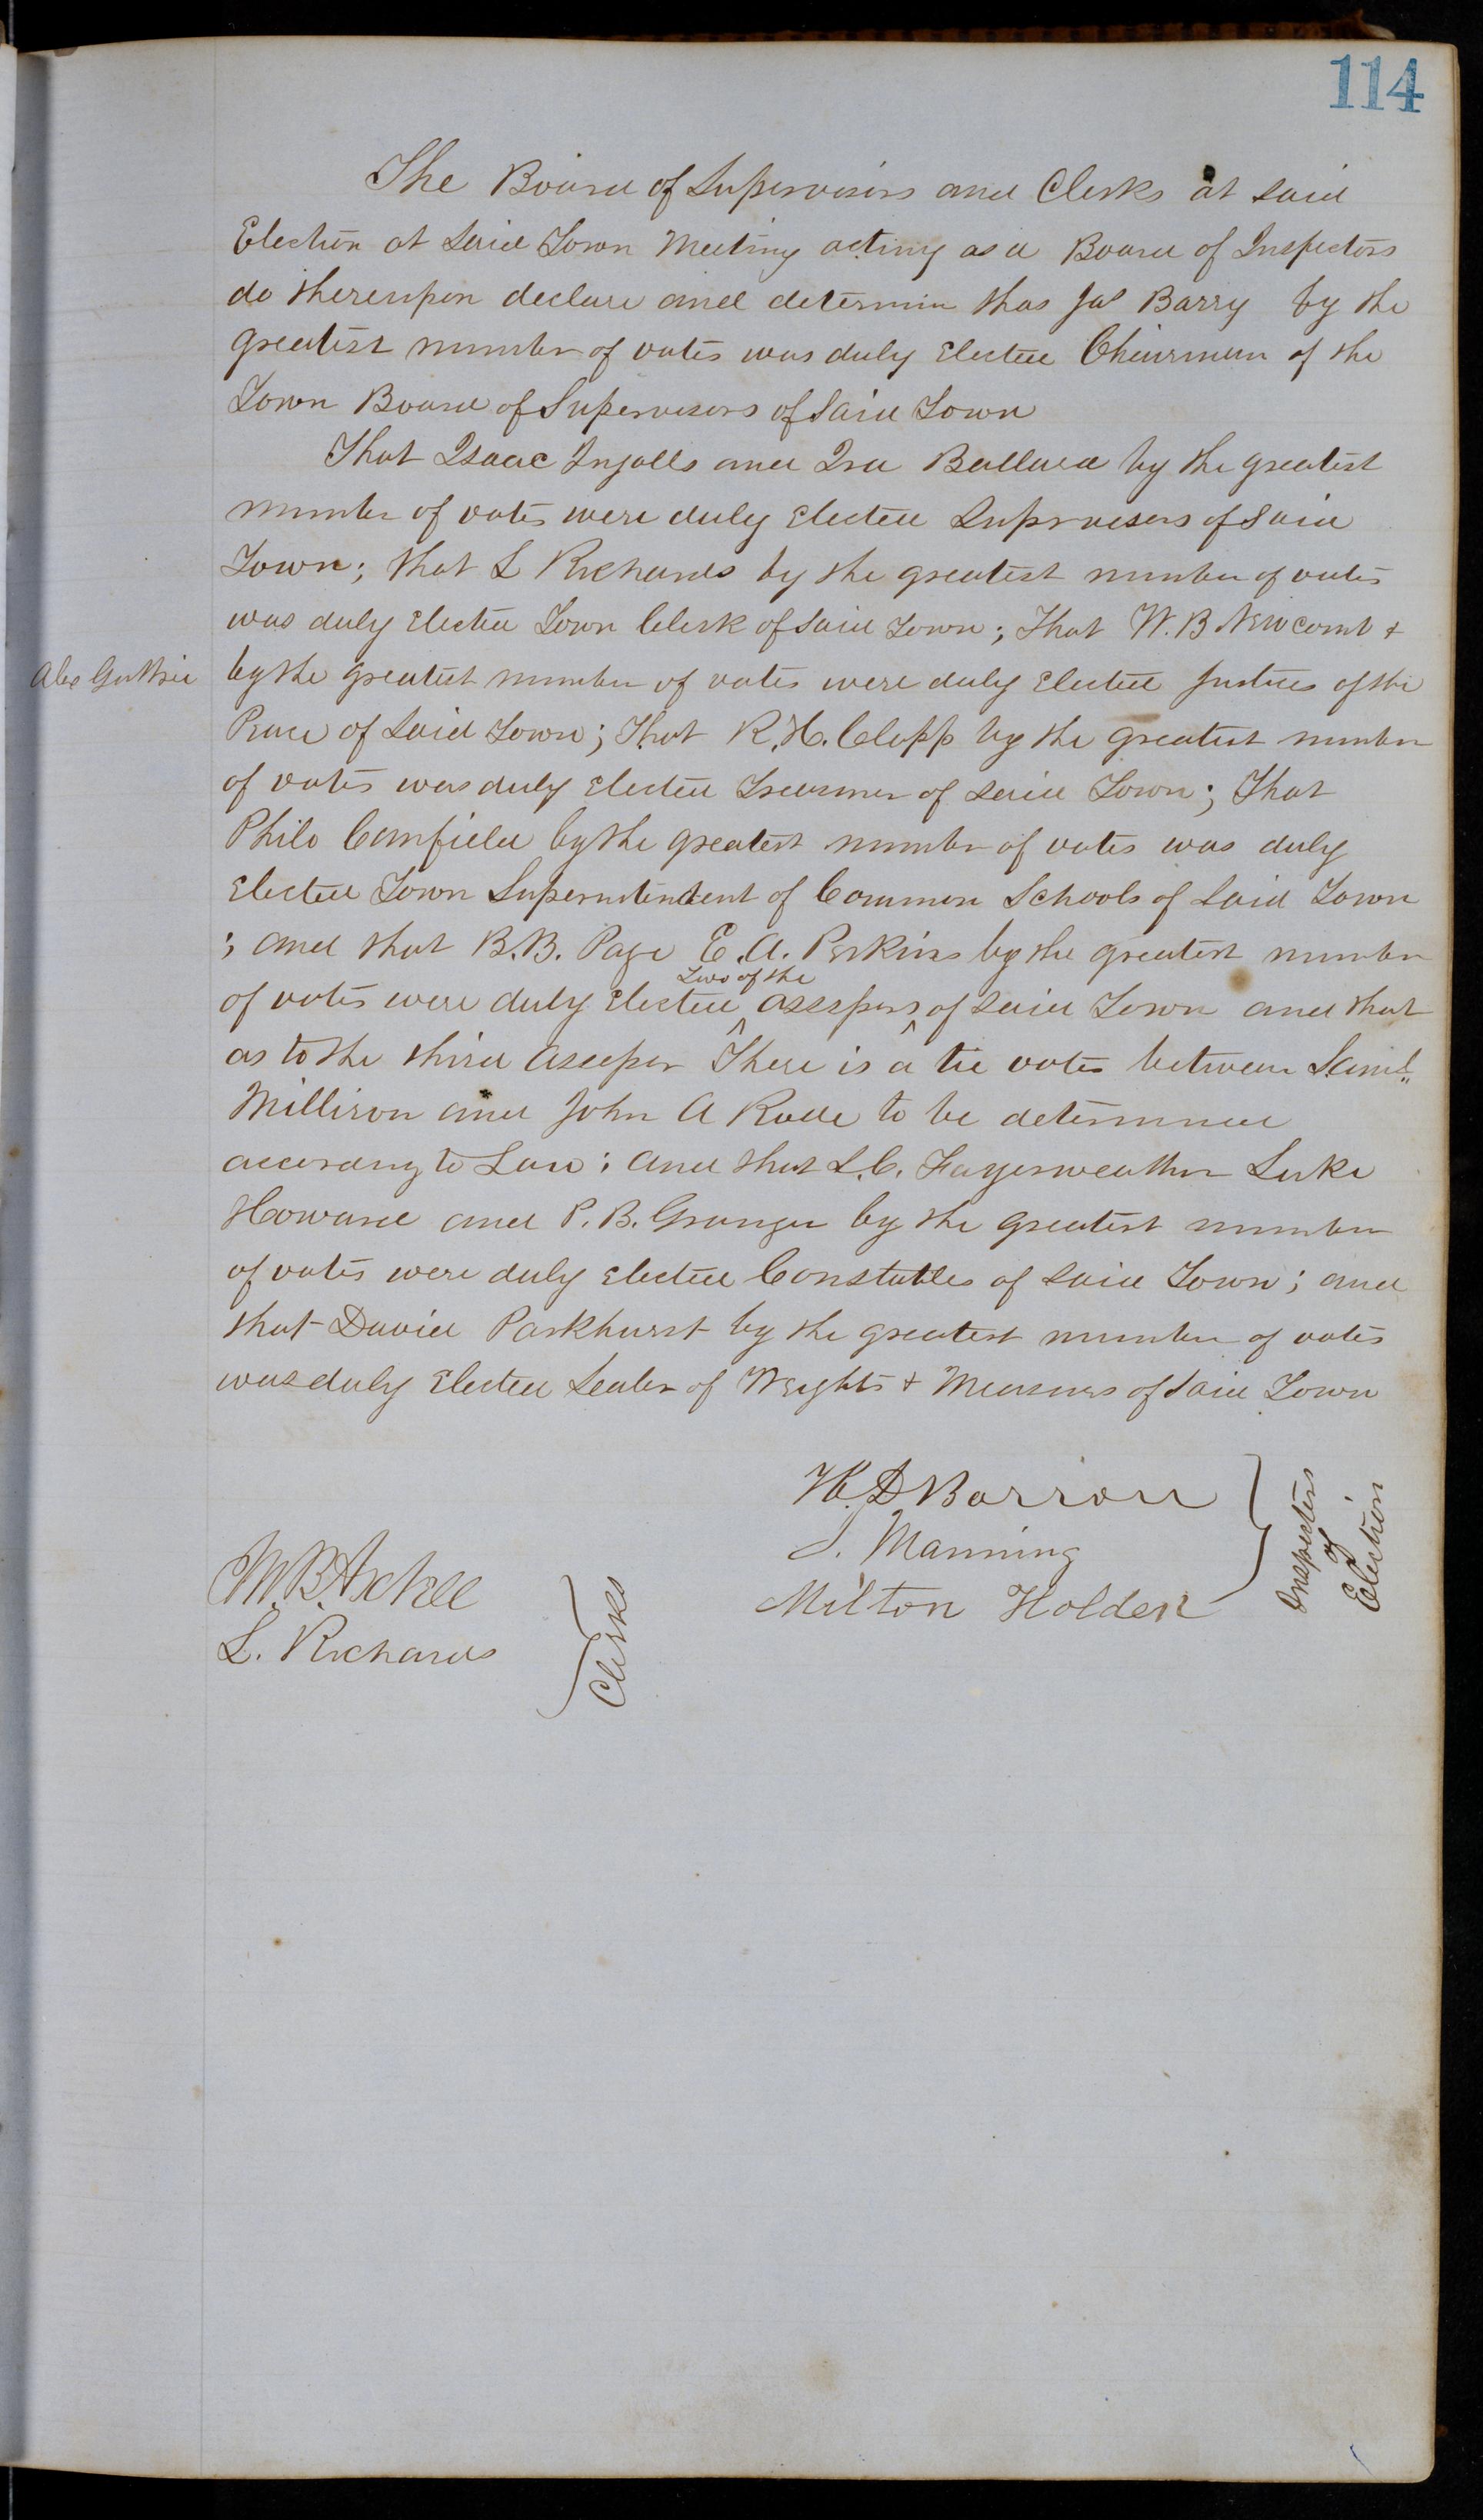 114
The Board of Supervisors and Clerks at said
Election at said Town Meeting acting as a Board of Inspectors
do thereupon declare and determin that Jas Barry by the
greatest number of votes was duly Elected Chairman of the
Town Board of Supervisors of Said Town
That Isaac Ingalls and Ira Ballard by the greatest
number of votes were duly Elected Supervisers of Said
Town; that L Richards by the greatest number of votes
was duly Elected Town Clerk of said Town; That W. B Newcomb &
Alex Guthrie by the greatest number of votes were duly Elected Justices of the
Peace of Said Town; That R. H. Clapp by the greatest number
of votes was duly Elected Treasurer of said Town; That
Philo Canfield by the greatest number of votes was duly
Elected Town Superintendent of Common Schools of Said Town
; and that B. B. Page E. A. Perkins by the greatest number
Two of the
of votes were duly Elected ^ assessors ^ of said Town and that
as to the third Assessor There is a tie votes between Saml
Millison and John A Rode to be determined
according to Law; and that L. C. Fayerweather Luke
Howard and P. B. Granger by the greatest number
of votes were duly Elected Constables of said Town; and
that David Parkhurst by the greatest number of votes
was duly Elected Sealer of Weights & Measures of Said Town
H. D Barron
S. Manning
Milton Holden
Inspectors of Election
L. Richards
Clerks